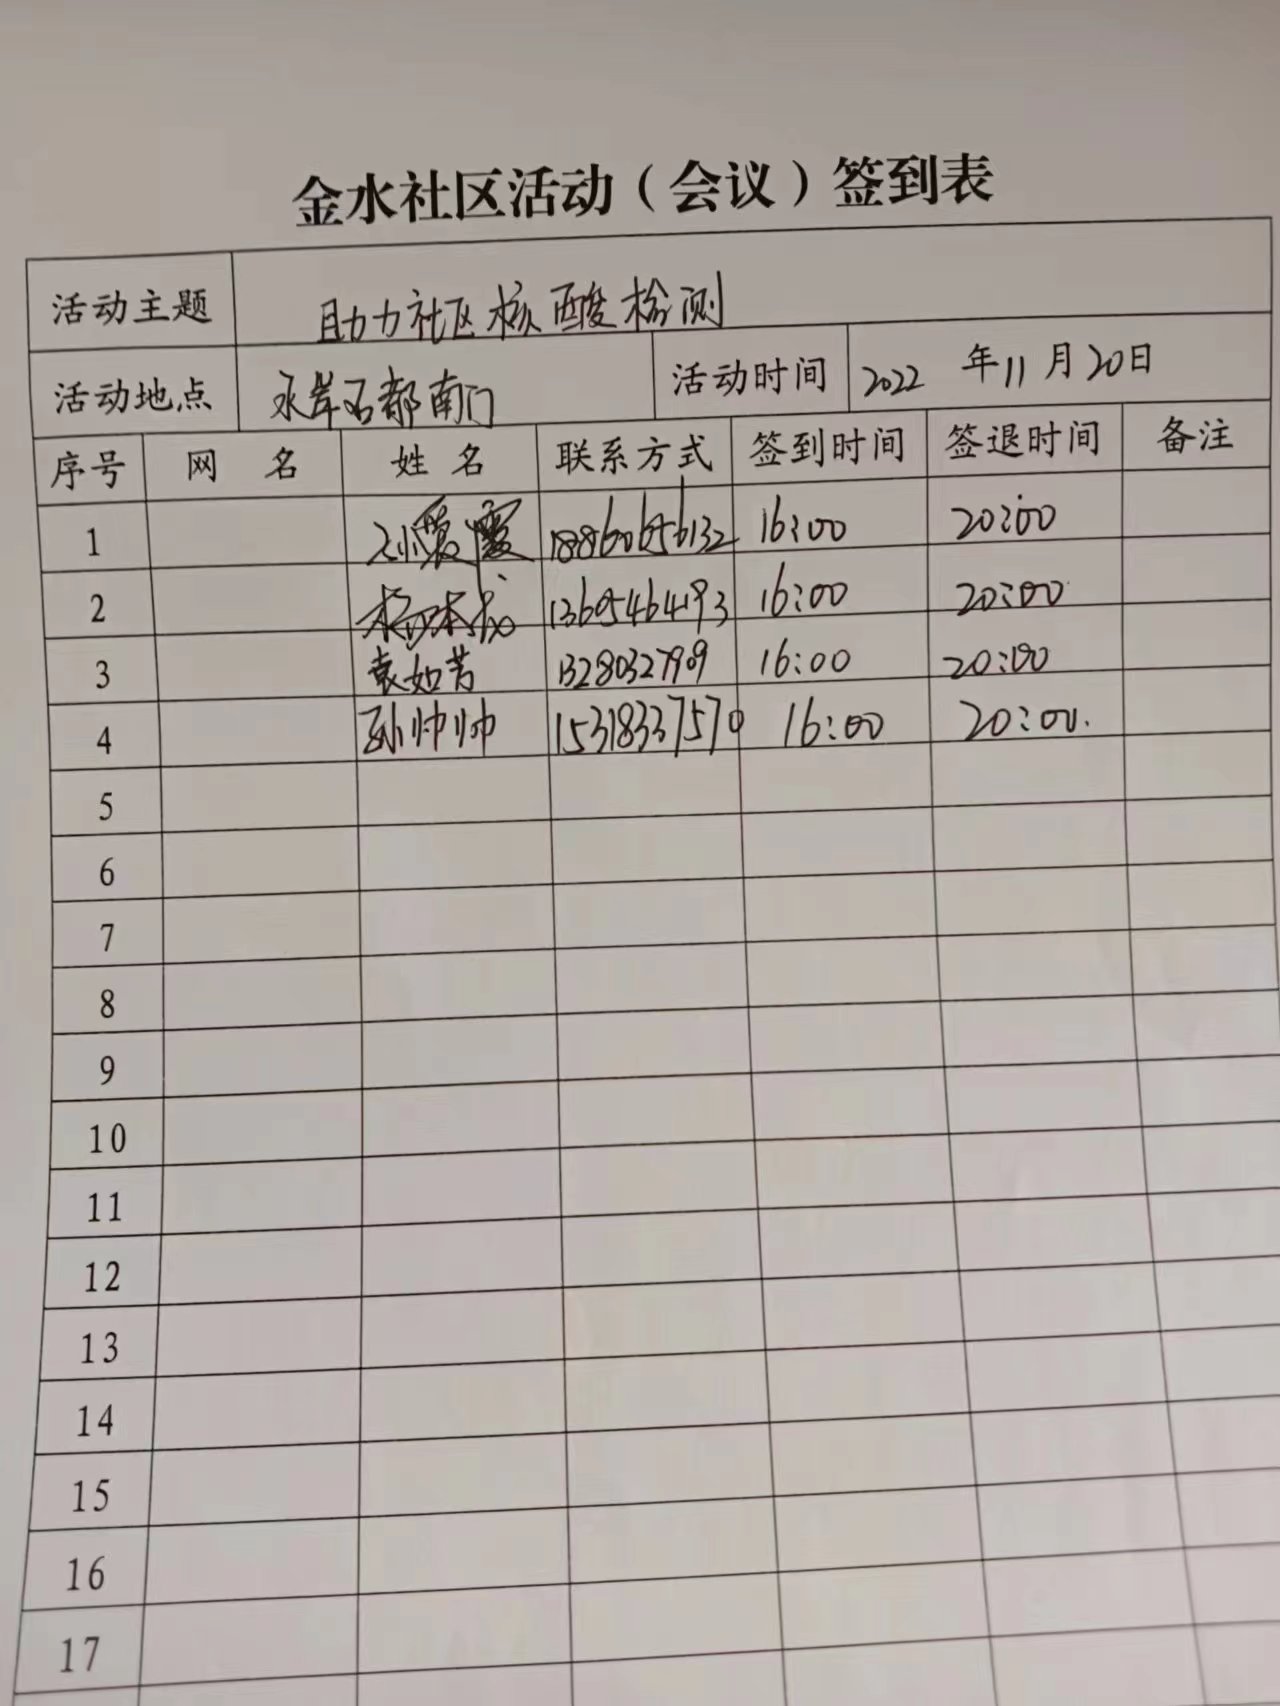 金水社区活动（会议）签到表
活动主题 助力社区核酸检测
活动地点 水岸名都南门 活动时间 2022 年11月20日
序号 网 名 姓 名 联系方式 签到时间 签退时间 备注
1 18860656132 16:00 20:00
2 13605464193 16:00 20:00
3 袁如芳 13280327909 16:00 20:00
4 孙帅帅 15318337570 16:00 20:00.
5
6
7
8
9
10
11
12
13
14
15
16
17